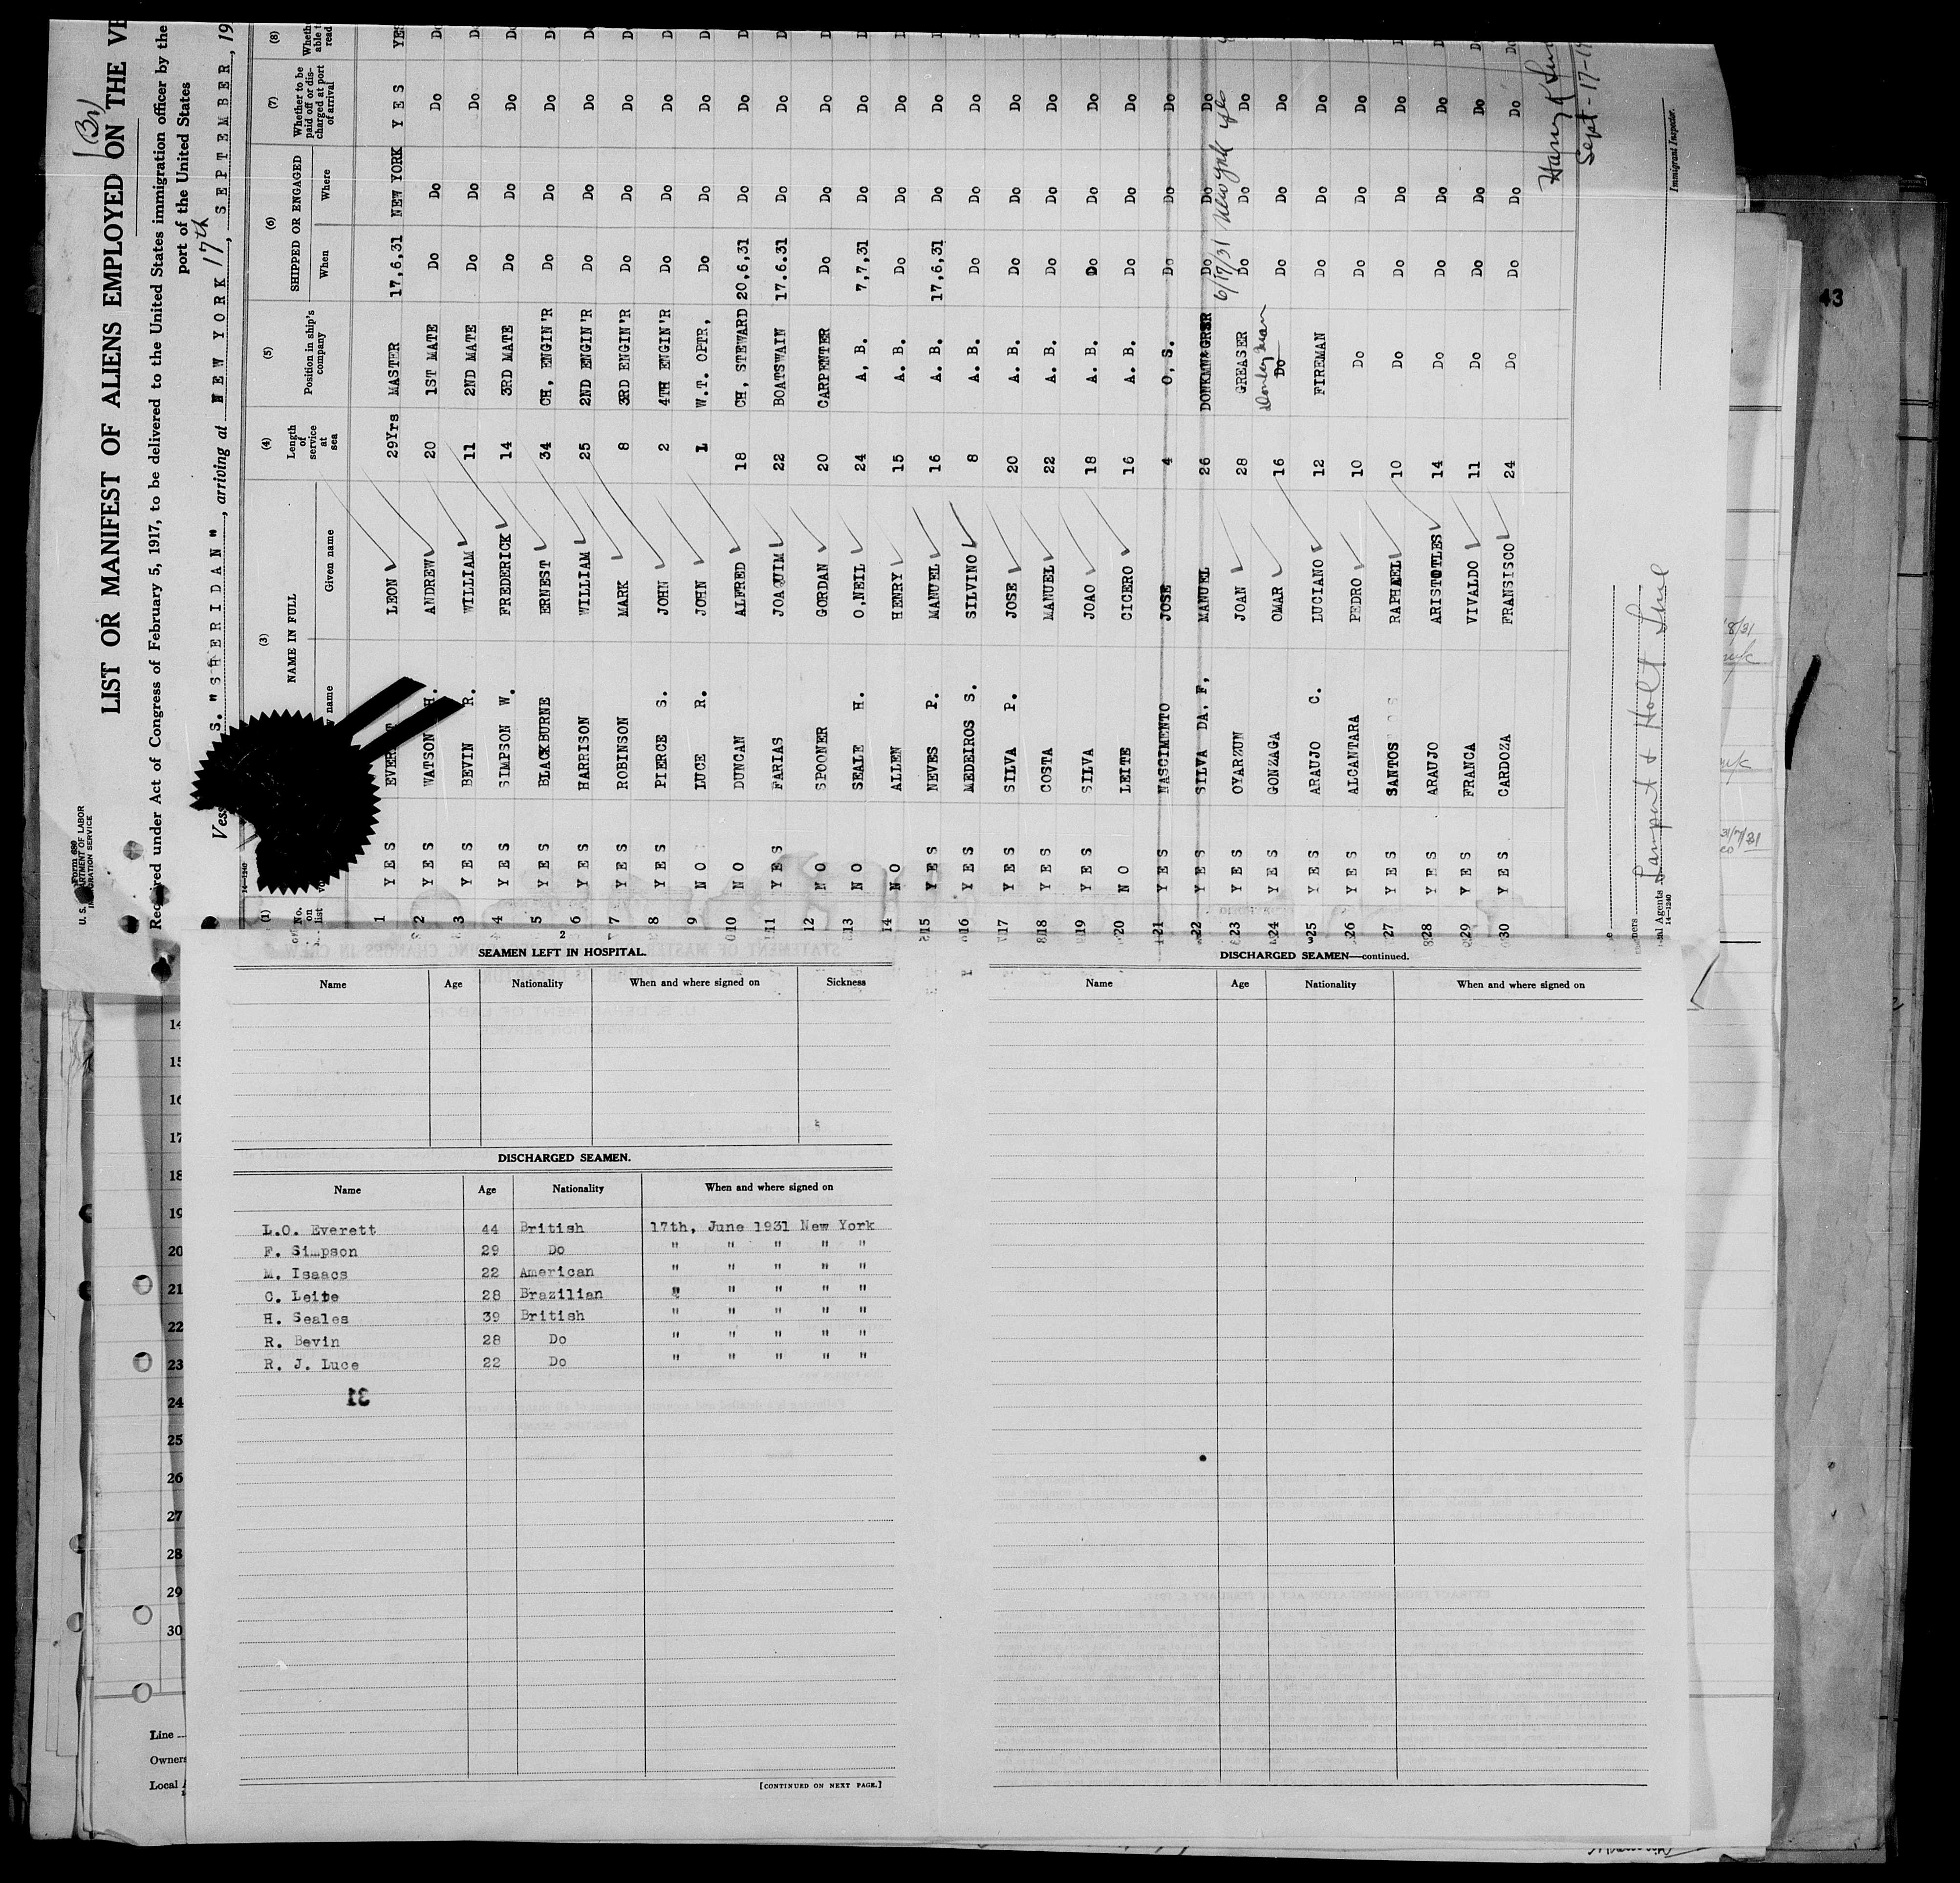 Form 680
U. S. DEPARTMENT OF LABOR
IMMIGRATION SERVICE
(Br)
LIST OR MANIFEST OF ALIENS EMPLOYED ON THE VE
Required under Act of Congress of February 5, 1917, to be delivered to the United States immigration officer by the
port of the United States
Vess S. "SHERIDAN", arriving at NEW YORK 17th, SEPTEMBER, 19
14-1240
(1) (3) (4) (5) (6) (7) (8)
No. on list
NAME IN FULL
name Given name
Length of service at sea
Position in ship's company
SHIPPED OR ENGAGED
When Where
Whether to be paid off or discharged at port of arrival
1 YES EVERETT LEON 29Yrs MASTER 17,6,31 NEW YORK YES YES
2 YES WATSON H. ANDREW 20 1ST MATE Do Do Do Do
3 YES BEVIN R. WILLIAM 11 2ND MATE Do Do Do Do
4 YES SIMPSON W. FREDERICK 14 3RD MATE Do Do Do Do
5 YES BLACKBURNE ERNEST 34 CH, ENGIN'R Do Do Do D
6 YES HARRISON WILLIAM 25 2ND ENGIN'R Do Do Do D
7 YES ROBINSON MARK 8 3RD ENGIN'R Do Do Do D
8 YES PIERCE S. JOHN 2 4TH ENGIN'R Do Do Do D
9 NO LUCE R. JOHN 1 W.T. OPTR, Do Do Do D
10 NO DUNCAN ALFRED 18 CH, STEWARD 20,6,31 Do Do D
11 YES FARIAS JOAQUIM 22 BOATSWAIN 17.6.31 Do Do D
12 NO SPOONER GORDAN 20 CARPENTER Do Do Do D
13 NO SEALE H. O,NEIL 24 A, B. 7,7,31 Do Do D
14 NO ALLEN HENRY 15 A. B. Do Do Do
15 YES NEVES P. MANUEL 16 A. B. 17,6,31 Do Do
16 YES MEDEIROS S. SILVINO 8 A. B. Do Do Do
17 YES SILVA P. JOSE 20 A. B. Do Do Do
18 YES COSTA MANUEL 22 A. B. Do Do Do
19 YES SILVA JOAO 18 A. B. Do Do Do
20 NO LEITE CICERO 16 A. B. Do Do Do
21 YES NASCIMENTO JOSE 4 O, S. Do Do Do
22 YES SILVA DA. F, MANUEL 26 Do Do Do
6/17/31 New York yes
23 YES OYARZUN JOAN 28 GREASER Do Do Do
24 YES GONZAGA OMAR 16 Do Donkey man Do Do Do
25 YES ARAUJO C. LUCIANO 12 FIREMAN Do Do Do D
26 YES ALCANTARA PEDRO 10 Do Do Do Do D
27 YES SANTOS RAPHAEL 10 Do Do Do Do D
28 YES ARAUJO ARISTOTLES 14 Do Do Do Do D
29 YES FRANCA VIVALDO 11 Do Do Do Do D
30 YES CARDOZA FRANSISCO 24 Do Do Do Do Do
Sept-17-
Immigrant Inspector.
Lamport & Holt Line
Agents
14-1240
43
2
SEAMEN LEFT IN HOSPITAL.
Name Age Nationality When and where signed on Sickness
DISCHARGED SEAMEN.
Name Age Nationality When and where signed on
L.O. Everett 44 British 17th, June 1931 New York
F. Simpson 29 Do " " " " "
M. Isaacs 22 American " " " " "
C. Leite 28 Brazilian " " " " "
H. Seales 39 British " " " " "
R. Bevin 28 Do " " " " "
R. J. Luce 22 Do " " " " "
31
[CONTINUED ON NEXT PAGE.]
DISCHARGED SEAMEN—continued.
Name Age Nationality When and where signed on
14
15
16
17
18
19
20
21
22
23
24
25
26
27
28
29
30
Line
Owners
Local